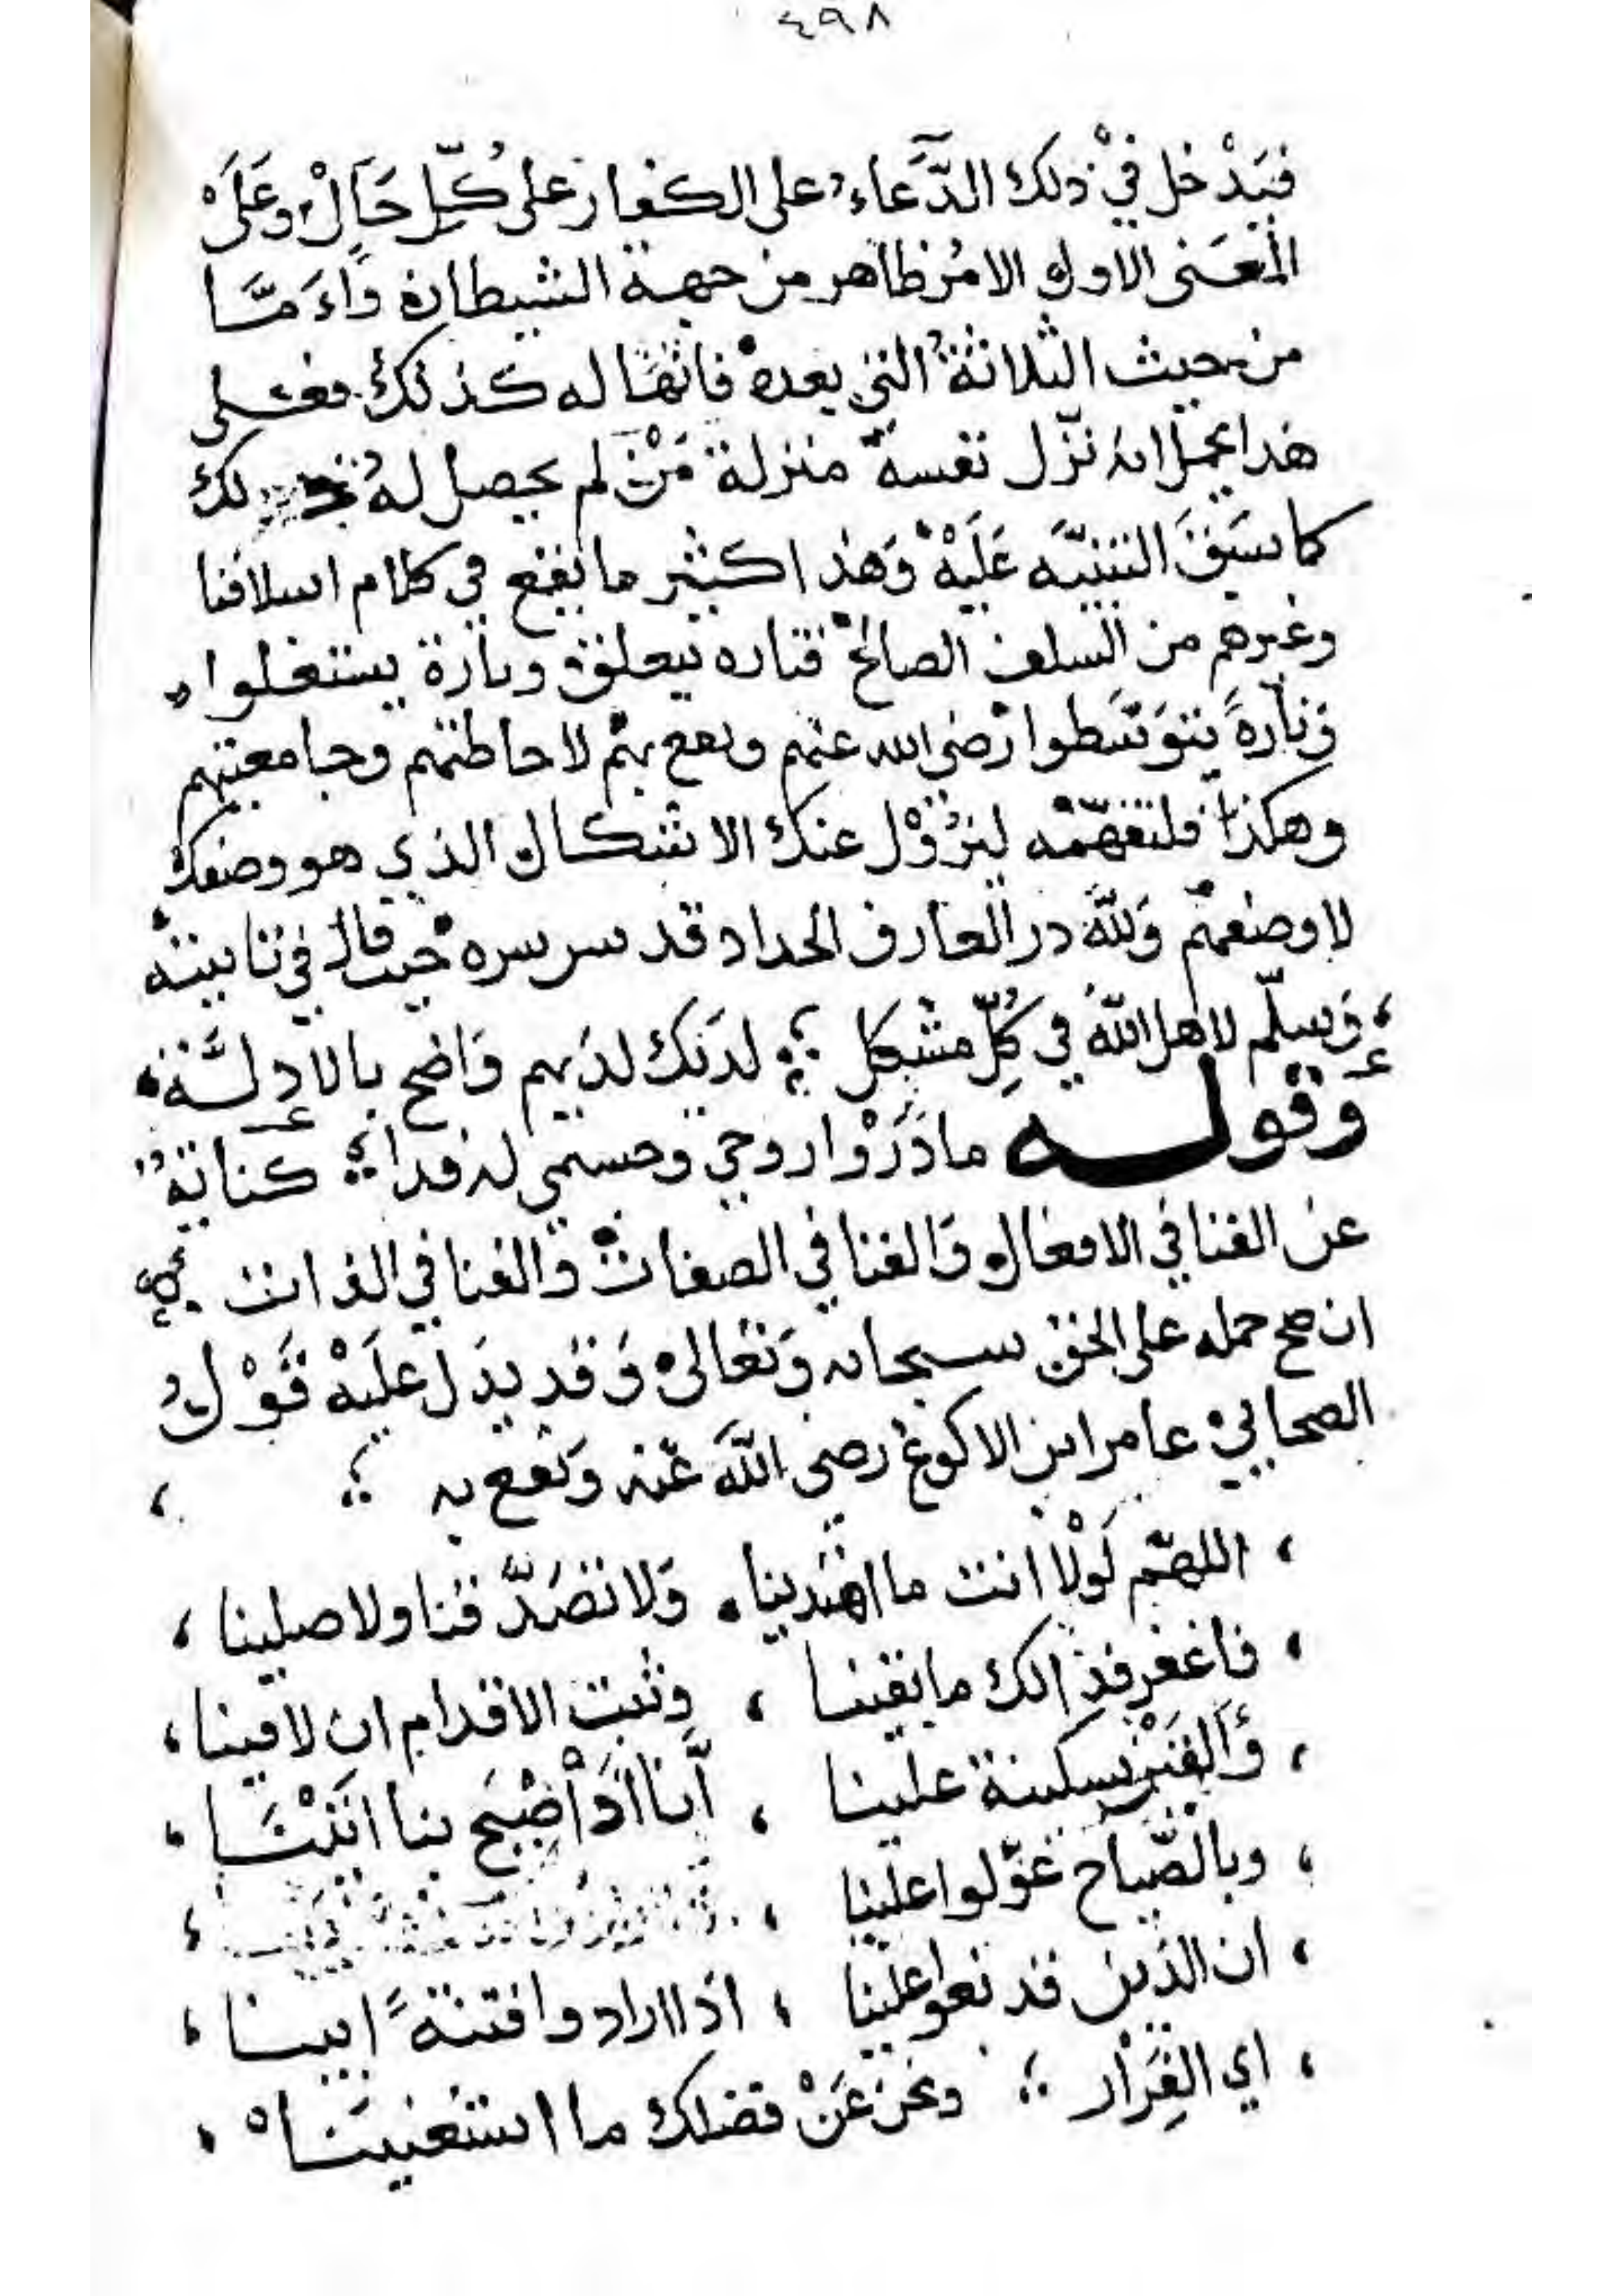 ٤٩٨
فيَدْخل فيْ ذلك الدَّعاء على الكفار على كُلِّ حَالْ وعَلَىْ
المعَنى الاول الامُر ظاهر من جهة الشيطان وَاءَمَّا
من حيث الثلاثةُ التي بعده فانهَّا له كذلك فعلى
هذا يحمل انه نزّل نفسه منزلة مَنْ لم يحصل لهُ ذلك
كما سَبَقَ التنبيَّه عَلَيْهْ وَهذا كثير ما يقع في كلام اسلافنا
وغيرهم من السلف الصالحْ فتاره يتعلق وتارة يستغلوا
وَتارةً يتوَسَّطوا رْضي الله عنهم ونفع بهم لاحاطتهم وجامعيتهم
وهكذا فلتفهّمْه ليَزُوْل عنك الاشكال الذي هو وصفك
لا وصفهم وَللَّه در العارف الحداد قدس سره حيث قال في تائيته
وَسلّم لاهل اللَّه في كُلِّ مشكل ؛ لدَيك لديهم وَاضح بالادِلَّة
وَقوله ماذَرْوا روحي وجسمي له فدا ؛ كناية
عن الفنا في الافعال وَالفنا في الصفات وَالفنا في الذات
ان صح حمله على الحق سبحانه وَتعَالىْ وَقد يدَل علَيْهْ قَوْلُ
الصحابيْ عامر ابن الاكوع رضي اللَّه عنه وَنفع به ؛ ،
، اللهمّ لَوْلا انت ما اهتدينا ، وَلا تصَدَّقنا ولا صلينا ،
، فاغفر فذالك ما بقينا ، وثبت الاقدام ان لاقينا ،
، وَأَلقيَنْ سكينة علينا ، أَنا اذَا أصْبحَ بنا اتَيْنَا ،
، وبالصَّياح عَوّلوا علينا ، ،
، ان الذين قد بغوا علينا ، اذا ارادوا فتنةً ابينا ،
، اي الفِرَارْ ؛ ونحن عَنْ فضلك ما استغنينَا ،